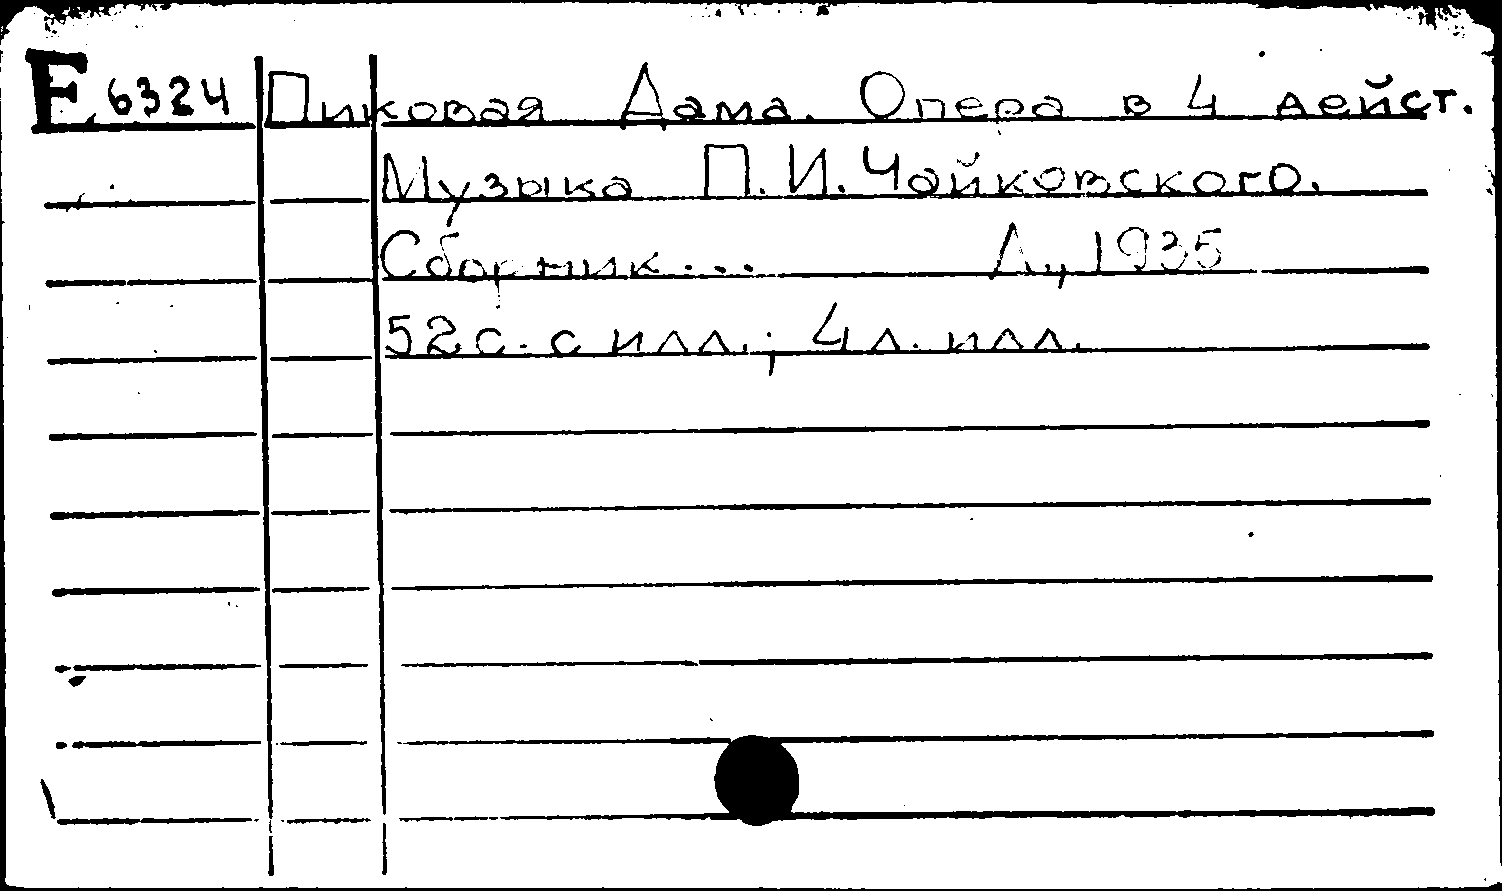 E 6324 Пиковая Дама. Опера в 4 дейст.
Музыка П.И. Чайковского.
Сборник... Л., 1935
52с. с илл.; 4 л. илл.